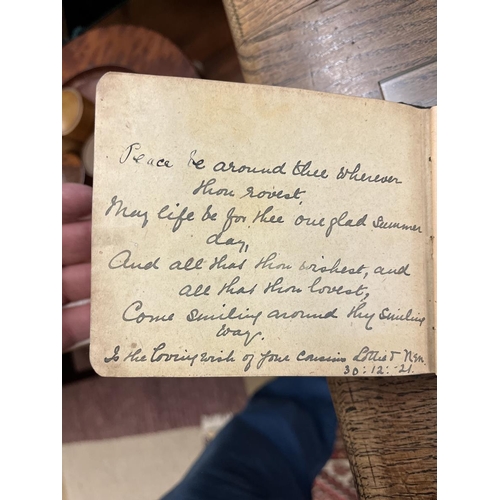 Peace be around thee wherever
thou rovest,
May life be for thee one glad summer
day,
And all that thou wishest, and
all that thou lovest,
Come smiling around thy smiling
way.
Is the loving wish of your cousins Lottie &
30:12:21.